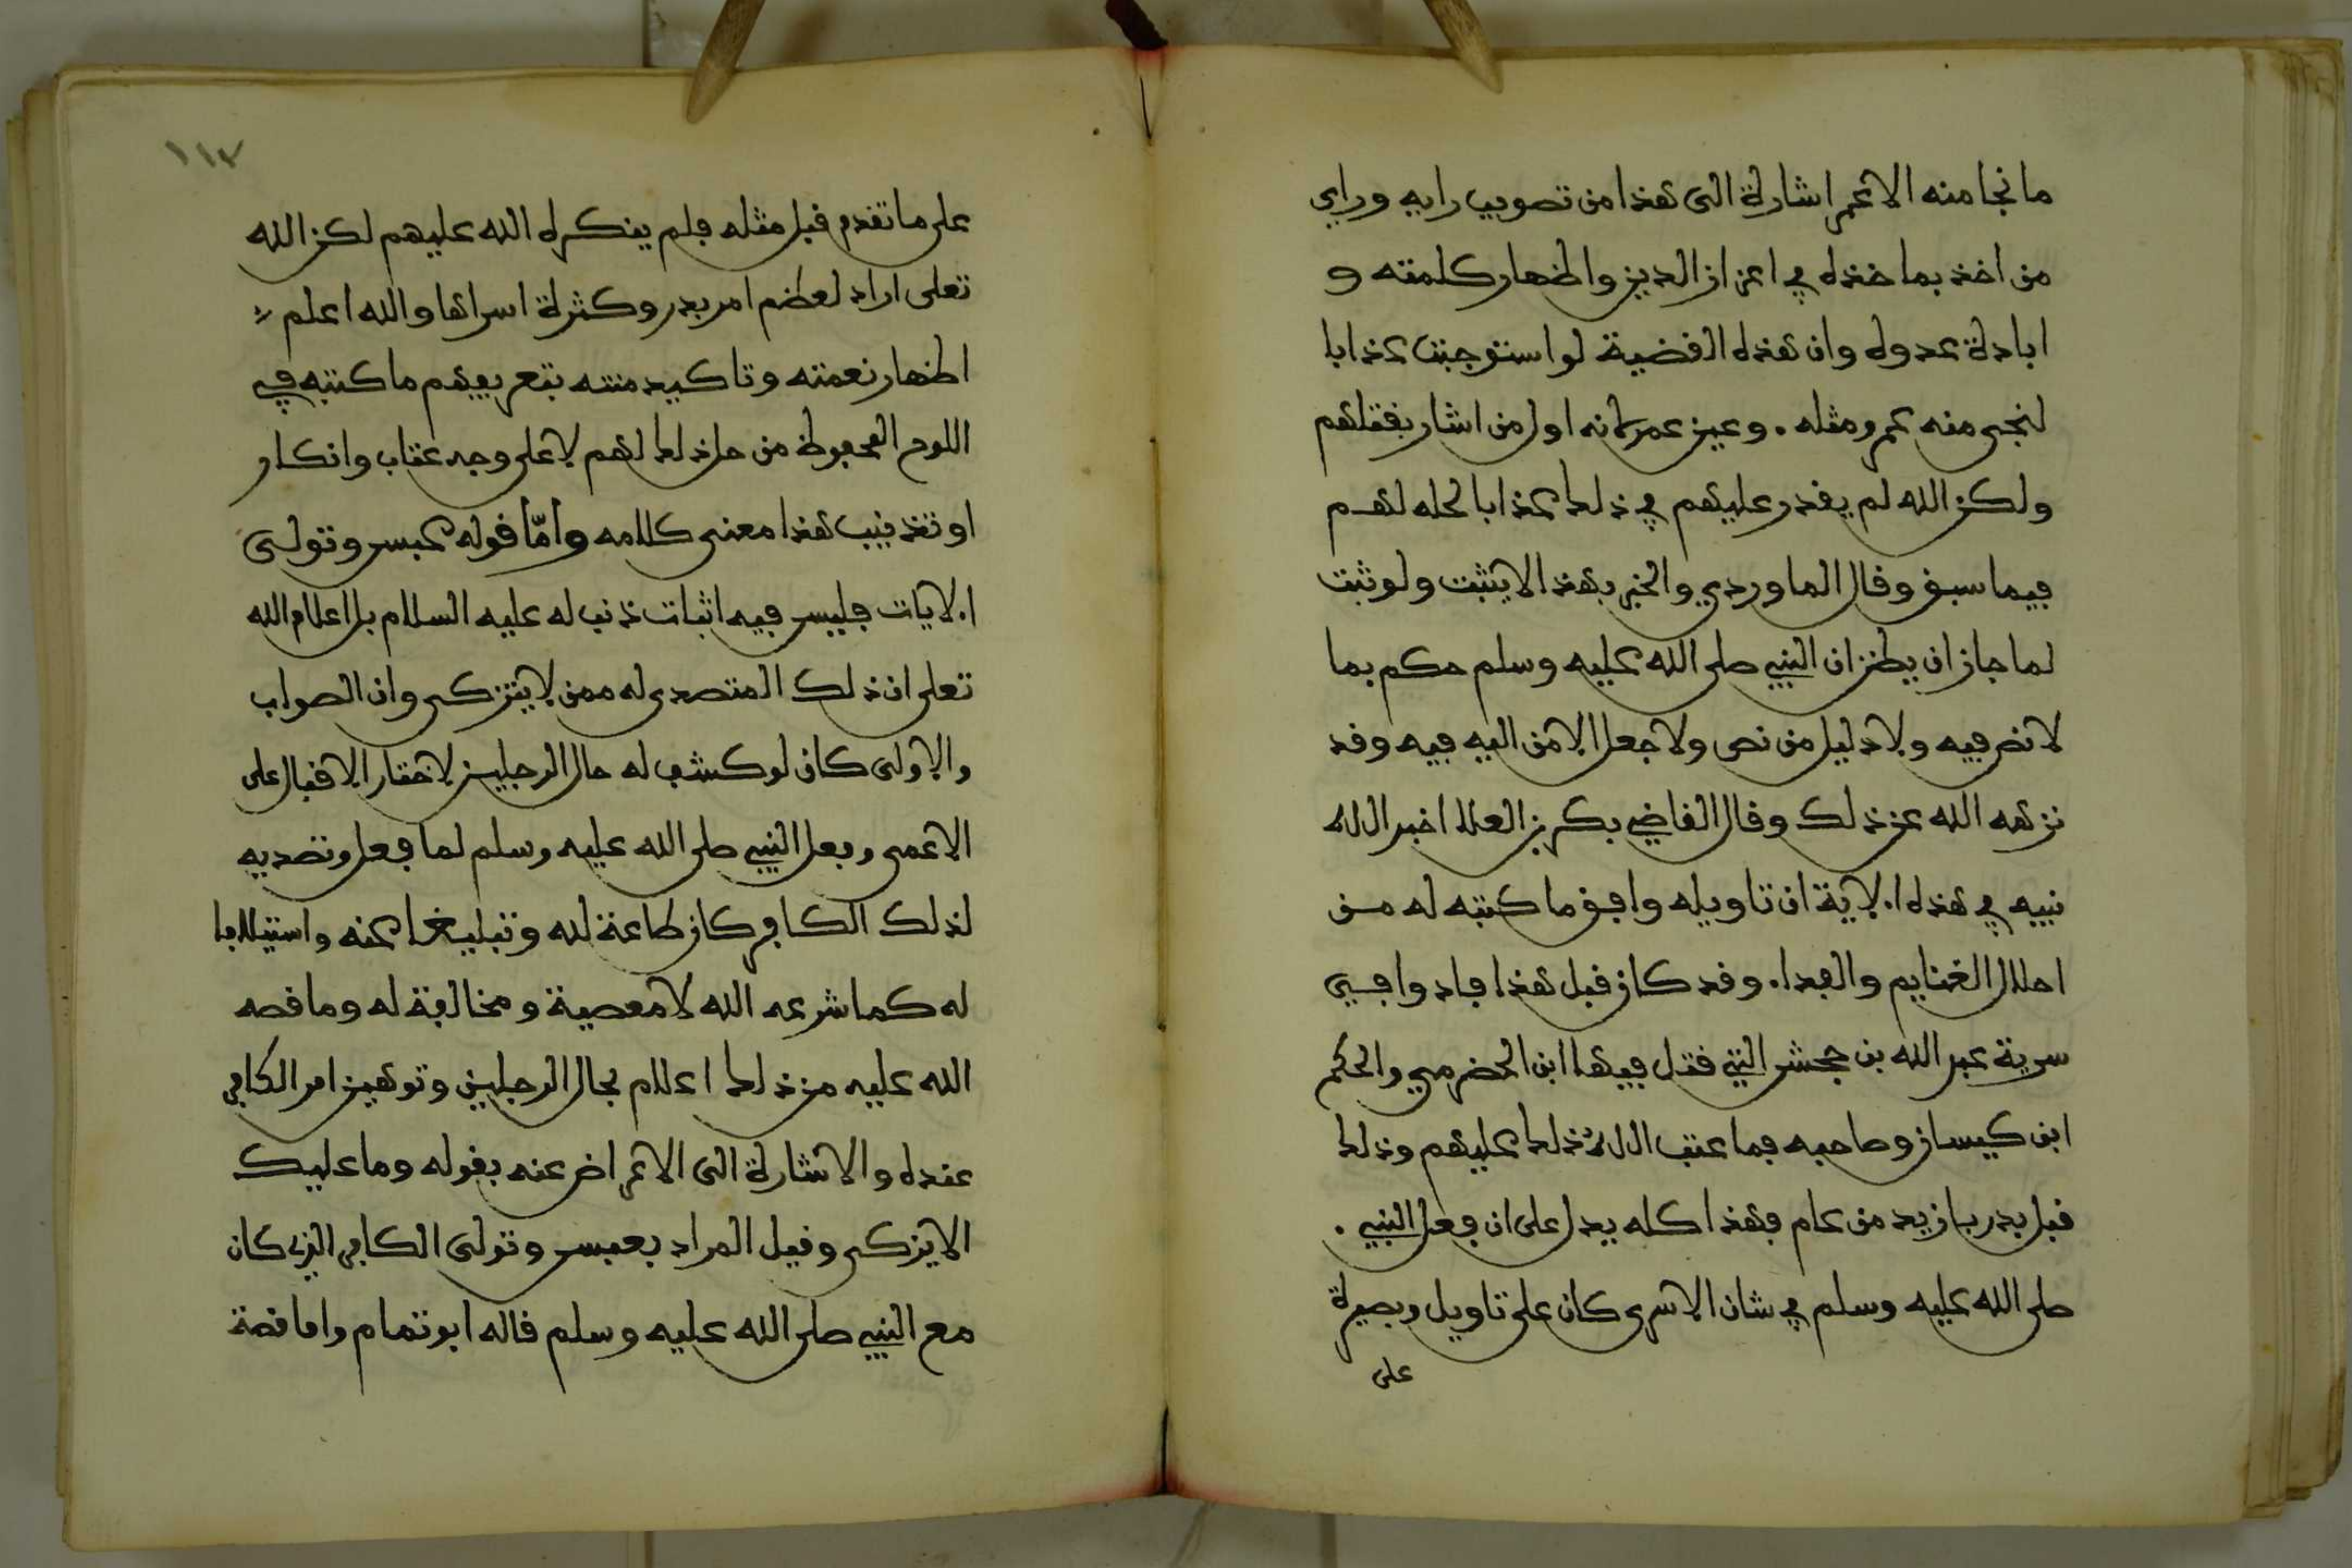 ما نجا منه الا عمر اشارة الى هذا من تصويب رايه وراي
من اخذ بماخذه في اعزاز الدين واظهار كلمته و
ابادة عدوه وان هذه القضية لو استوجبت عذابا
لنجى منه عمر ومثله . وعين عمر لانه اول من اشار بقتلهم
ولكن الله لم يقدر عليهم في ذلك عذابا لحله لهم
فيما سبق وقال الماوردي والخبر بهذا لا يثبت ولو ثبت
لما جاز ان يظن ان النبي صلى الله عليه وسلم حكم بما
لا نص فيه ولا دليل من نص ولا جعل الامر اليه فيه وقد
نزهه الله عن ذلك وقال القاضي بكر بن العلا اخبر الله
نبيه في هذه الاية ان تاويله وافق ما كتبه له من
احلال الغنايم والفدا. وقد كان قبل هذا فادوا في
سرية عبد الله بن جحش التي قتل فيها ابن الحضرمي والحكم
ابن كيسان وصاحبه فما عتب الله ذلك عليهم وذلك
قبل بدر بازيد من عام فهذا كله يدل على ان فعل النبي .
صلى الله عليه وسلم في شان الاسرى كان على تاويل وبصيرة
على
١١٧
على ما تقدم قبل مثله فلم ينكره الله عليهم لكن الله
تعلى اراد لعظم امر بدر وكثرة اسراها والله اعلم
اظهار نعمته وتاكيد منته بتعريفهم ما كتبه في
اللوح المحفوظ من حل ذلك لهم لا على وجه عتاب وانكار
او تذنيب هذا معنى كلامه وأمّا قوله عبس وتولى
الايات فليس فيه اثبات ذنب له عليه السلام بل اعلام الله
تعلى ان ذلك المتصدى له ممن لا يتزكى وان الصواب
والاولى كان لو كشف له حال الرجلين لاختار الاقبال على
الاعمى وفعل النبي صلى الله عليه وسلم لما فعل وتصديه
لذلك الكافر كان طاعة لله وتبليغا عنه واستيلافا
له كما شرعه الله لا معصية ومخالفة له وما قصه
الله عليه من ذلك اعلام بحال الرجلين وتوهين امر الكافر
عنده والاشارة الى الاعراض عنه بقوله وما عليك
الا يزكى وقيل المراد بعبس وتولى الكافر الذى كان
مع النبي صلى الله عليه وسلم قاله ابو تمام واما قصة